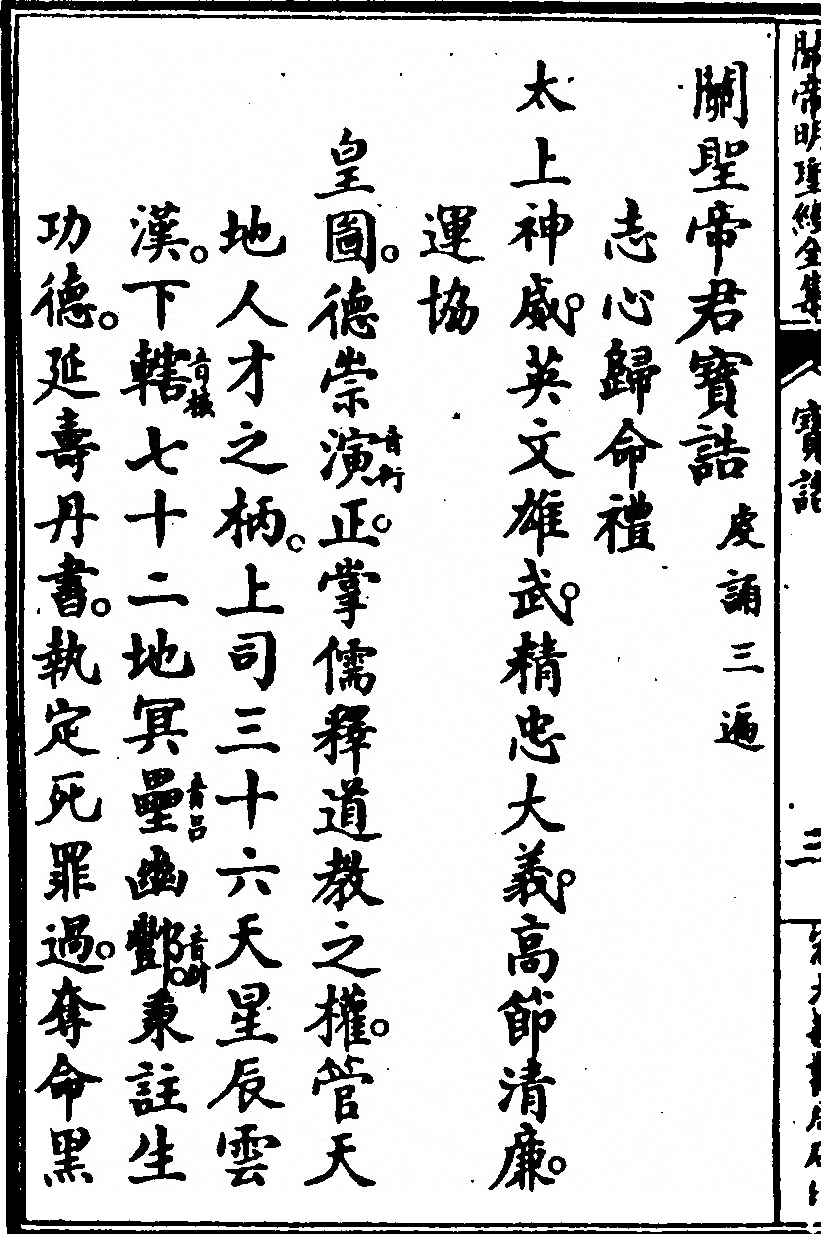 關帝明聖經全集
寶誥
三
關聖帝君寶誥 虔誦三遍
志心歸命禮
太上神威。英文雄武。精忠大義。高節清廉。
運協
皇圖。德崇演音衍正。掌儒釋道教之權。管天
地人才之柄。上司三十六天星辰雲
漢。下轄音核七十二地冥壘音呂幽酆。秉註生
功德。延壽丹書。執定死罪過。奪命黑